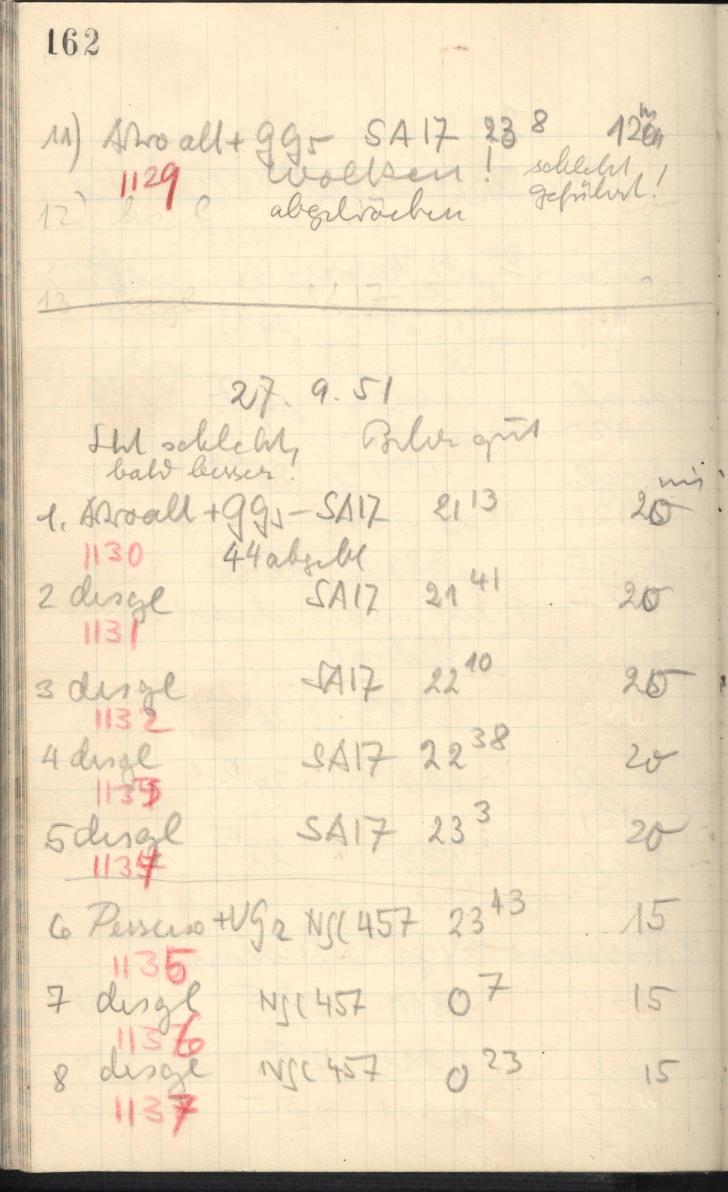 162
11) Astro all + gg5 SA17 23 8 12 m
1129 Wolken! schlecht
12) abgebrochen geführt!
13 SA17
27. 9. 51
Sicht schlecht,
bald besser!
1. Astro all + gg5 - SA17 21 13 20 min
1130 44 abgebl
2 desgl SA17 21 41 20
1131
3 desgl SA17 22 10 20
1132
4 desgl SA17 22 38 20
1133
5 desgl SA17 23 3 20
1134
6 Perseus + VG2 NGC 457 23 43 15
1135
7 desgl NGC 457 0 7 15
1136
8 desgl NGC 457 0 23 15
1137